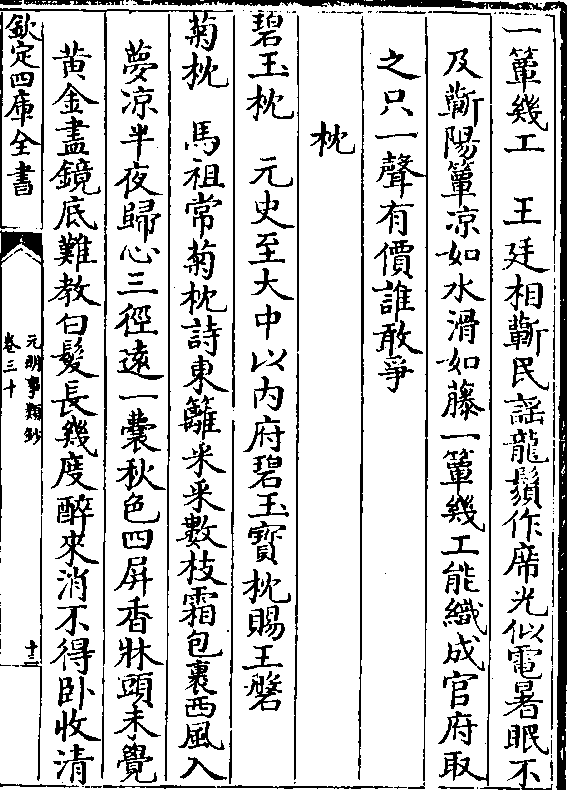 一簟幾工　王廷相蘄民謡龍鬚作席光似電暑眠不
及蘄陽簟凉如水滑如藤一簟幾工能織成官府取
之只一聲有價誰敢爭
枕
碧玉枕　元史至大中以内府碧玉寳枕賜王磐
菊枕　馬祖常菊枕詩東籬采采數枝霜包裹西風入
夢凉半夜歸心三徑逺一囊秋色四屏香牀頭未覺
黄金盡鏡底難教白髮長幾度醉來消不得卧收清
欽定四庫全書
元明事類鈔
卷三十
十二